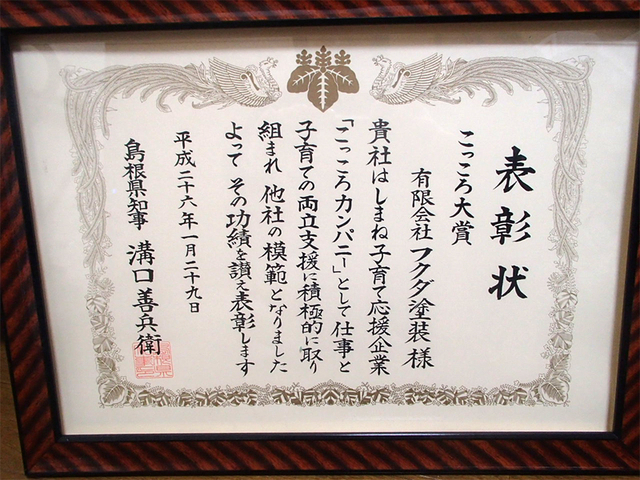 表彰状
こっころ大賞
有限会社フクダ塗装様
貴社はしまね子育て応援企業
「こっころカンパニー」として仕事と
子育ての両立支援に積極的に取り
組まれ 他社の模範となりました
よって その功績を讃え表彰します
平成二十六年一月二十九日
島根県知事 溝口善兵衛